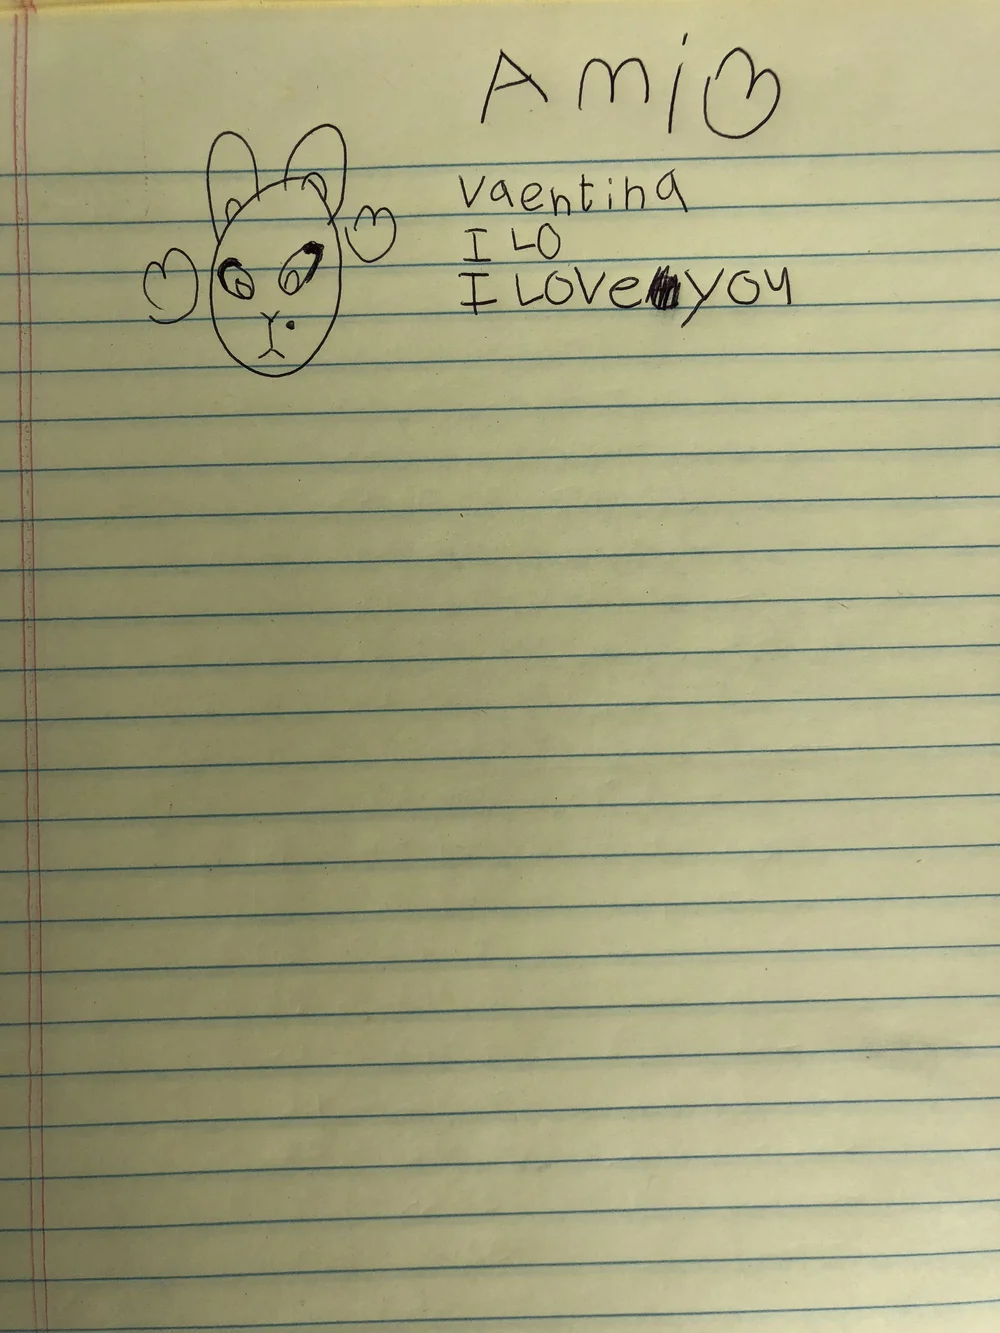 Ami
Vaentina
I LO
I LOVe you